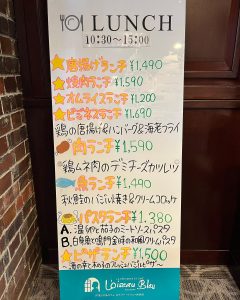 LUNCH
10:30~15:00
唐揚げランチ ¥1,490
焼肉ランチ ¥1,590
オムライスランチ ¥1,200
ビジネスランチ ¥1,690
鶏の唐揚げ&ハンバーグ&海老フライ
肉ランチ ¥1,590
鶏ムネ肉のデミチーズカツレツ
魚ランチ ¥1,490
秋鮭のバジル焼き&クリームコロッケ
パスタランチ ¥1,380
A. 温卵と茄子のミートソースパスタ
B. 鳴門金時の和風クリームパスタ
ピザランチ ¥1,500
Loiseau Bleu